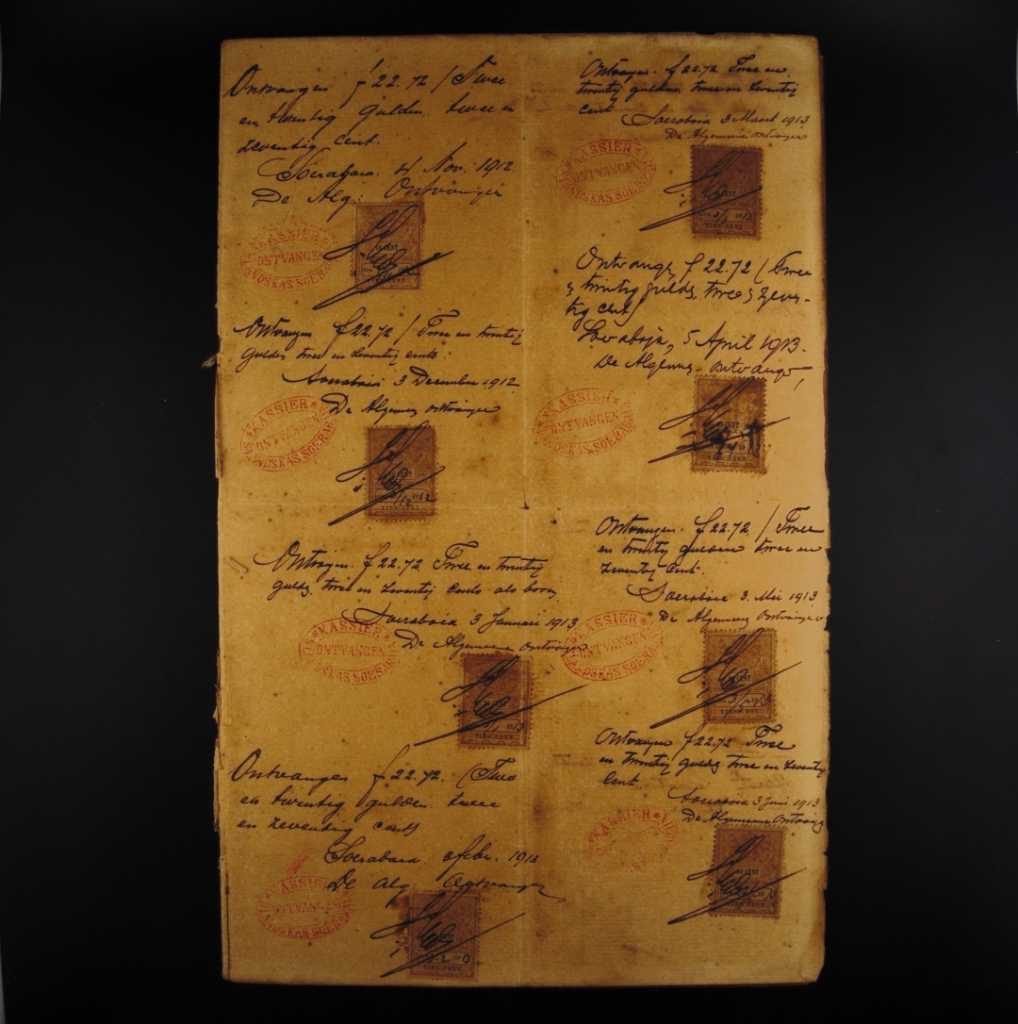 Ontvangen f 22.72 / Twee
en twentig gulden twee en
zeventig cent.
Soerabaia 4 Nov. 1912
De Alg: Ontvanger
KASSIER
ONTVANGEN
LANDSKAS SOERABAIA
Ontvangen f 22.72 / Twee en twintig
gulden twee en zeventig cents.
Soerabaia 3 December 1912
De Algemeene ontvanger
KASSIER
ONTVANGEN
LANDSKAS SOERABAIA
Ontvangen f 22.72 Twee en twintig
gulds twee en zeventig cents als boven
Soerabaia 3 Januari 1913
De Algemeene ontvanger
KASSIER
ONTVANGEN
LANDSKAS SOERABAIA
Ontvangen f 22.72. (Twee
en twentig gulden twee
en zeventig cents
Soerabaia febr. 1913
De alg Ontvanger
KASSIER
ONTVANGEN
LANDSKAS SOERABAIA
Ontvangen f 22.72 Twee en
twintig gulden twee en zeventig
cent
Soerabaia 3 Maart 1913
De Algemeene ontvanger
KASSIER
ONTVANGEN
LANDSKAS SOERABAIA
Ontvangen f 22.72 (Twee
en twintig gulds, twee en zeven-
tig cent)
Soerabaja, 5 April 1913.
De Algemeene ontvanger,
KASSIER
ONTVANGEN
LANDSKAS SOERABAIA
Ontvangen f 22.72 / Twee
en twintig gulden twee en
zeventig cent.
Soerabaia 3 Mei 1913
De Algemeene Ontvanger
KASSIER
ONTVANGEN
LANDSKAS SOERABAIA
Ontvangen f 22.72 Twee
en twintig gulds twee en zeventig
cent.
Soerabaia 3 Juni 1913
De Algemeene Ontvanger
KASSIER